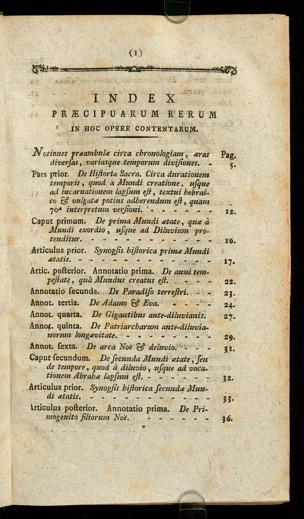 (1)
INDEX
PRÆCIPUARUM RERUM
IN HOC OPERE CONTENTARUM.
Notiones præambulæ circa chronologiam, æras Pag.
diversas, variasque temporum divisiones. - 5.
Pars prior. De Historia Sacra. Circa durationem
temporis, quod a Mundi creatione, usque
ad incarnationem lapsum est, textui hebrai-
co & vulgatæ potius adherendum est, quam
70ª interpretum versioni. - - - - - - 12.
Caput primum. De prima Mundi ætate, quæ à
Mundi exordio, usque ad Diluvium pro-
tenditur. - - - - - - - - - 16.
Articulus prior. Synopsis historica primæ Mundi
ætatis. - - - - - - - - - 17.
Artic. posterior. Annotatio prima. De anni tem-
pestate, quâ Mundus creatus est. - - - 22.
Annotatio secunda. De Paradiso terrestri. - - 23.
Annot. tertia. De Adamo & Eva. - - - - 24.
Annot. quarta. De Gigantibus ante-diluvianis. 27.
Annot. quinta. De Patriarcharum ante-diluvia-
norum longævitate. - - - - - - - 29.
Annot. sexta. De arca Noe & diluvio. - - - 31.
Caput secundum. De secunda Mundi ætate, seu
de tempore, quod à diluvio, usque ad voca-
tionem Abrahæ lapsum est. - - - - - 32.
Articulus prior. Synopsis historica secundæ Mun-
di ætatis. - - - - - - - - - 33.
Articulus posterior. Annotatio prima. De Pri-
mogenito filiorum Noë. - - - - - - 36.